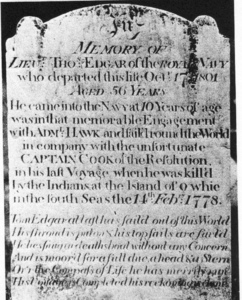 MEMORY OF
LIEUT. THOS. EDGAR OF THE ROYAL NAVY
who departed this life Octr. 17th 1801
AGED 56 YEARS
He came into the Navy at 10 Years of age
was in that memorable Engagement
with ADML. HAWK and sail'd round the World
in company with the unfortunate
CAPTAIN COOK of the Resolution
in his last Voyage when he was kill'd
by the Indians at the Island of O whie
in the south Seas the 14th Feby. 1778.
Tom Edgar at last has sail'd out of this World
His shroud is put on & his top sails are furl'd
He lies snug in deaths boat without any Concern
And is moor'd for a full due ahead & a Stern
O'er the Compass of Life he has merrily run
His Voyage is Completed his reckoning is done